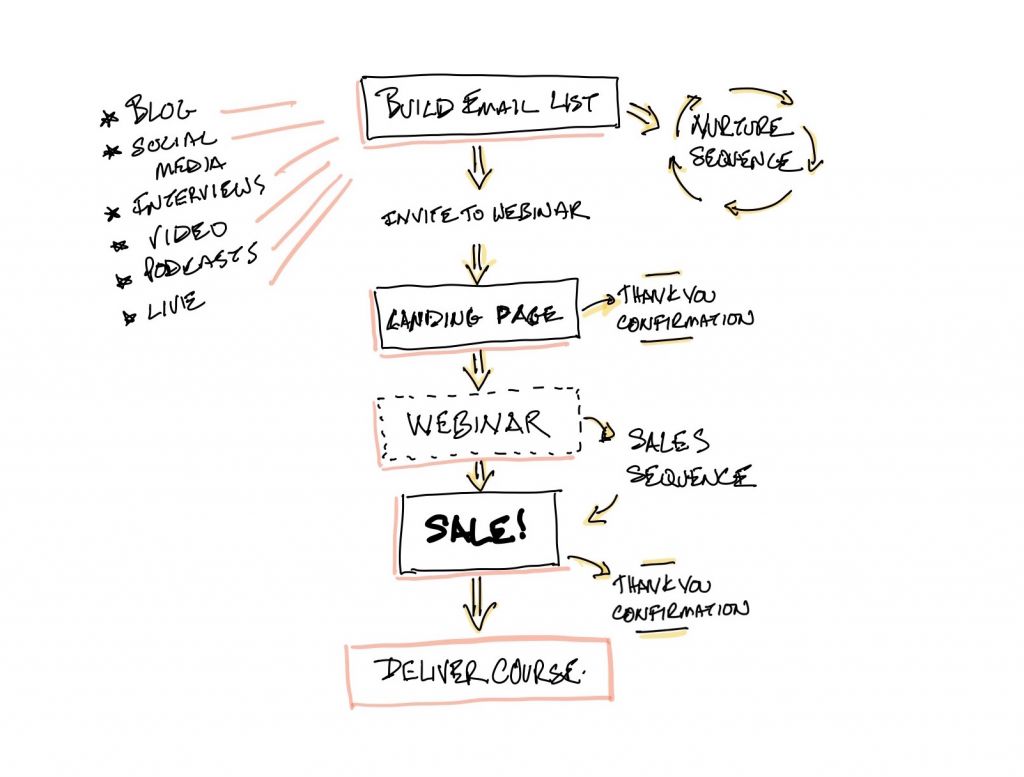 BLOG
SOCIAL
MEDIA
INTERVIEWS
VIDEO
PODCASTS
LIVE
BUILD EMAIL LIST
NURTURE
SEQUENCE
INVITE TO WEBINAR
LANDING PAGE
THANK YOU
CONFIRMATION
WEBINAR
SALES
SEQUENCE
SALE!
THANK YOU
CONFIRMATION
DELIVER COURSE.